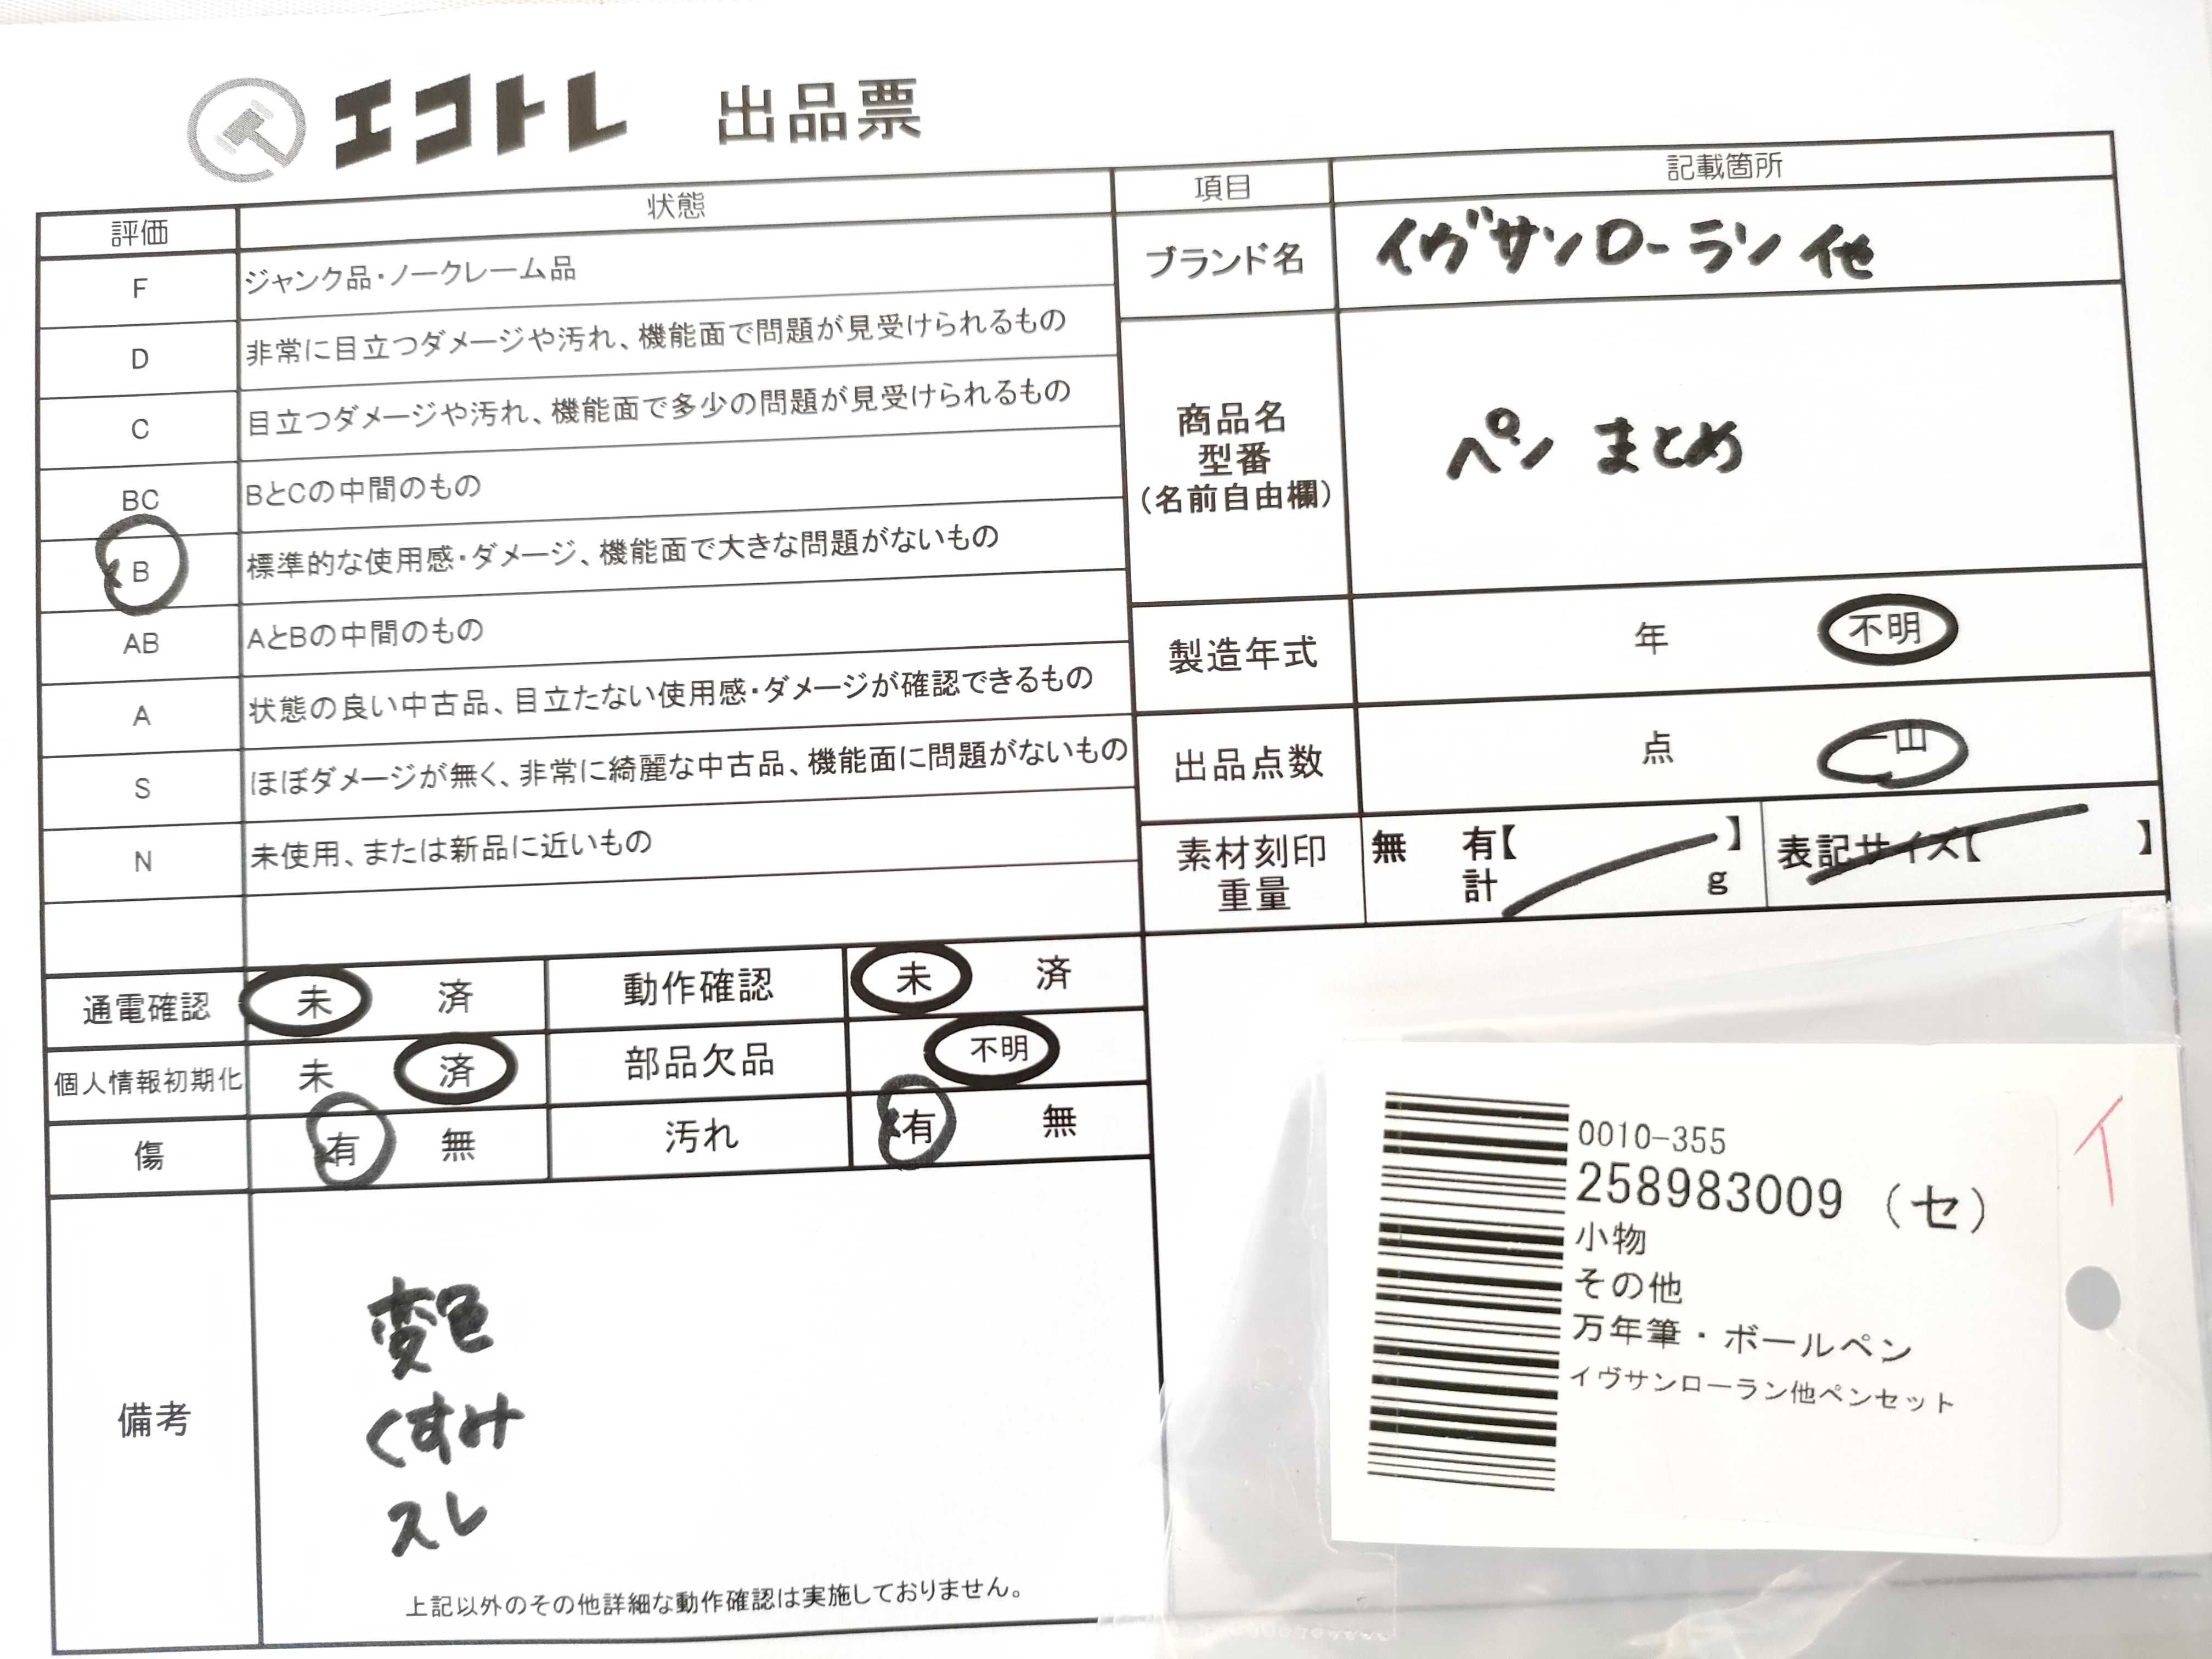 エコトレ 出品票
評価 状態
F ジャンク品・ノークレーム品
D 非常に目立つダメージや汚れ、機能面で問題が見受けられるもの
C 目立つダメージや汚れ、機能面で多少の問題が見受けられるもの
BC BとCの中間のもの
B 標準的な使用感・ダメージ、機能面で大きな問題がないもの
AB AとBの中間のもの
A 状態の良い中古品、目立たない使用感・ダメージが確認できるもの
S ほぼダメージが無く、非常に綺麗な中古品、機能面に問題がないもの
N 未使用、または新品に近いもの
項目 記載箇所
ブランド名 イヴサンローラン 他
商品名
型番
（名前自由欄）
ペン まとめ
製造年式 年 不明
出品点数 点 一山
素材刻印 無 有【 】 表記サイズ【 】
重量 計 g
通電確認 未 済 動作確認 未 済
個人情報初期化 未 済 部品欠品 不明
傷 有 無 汚れ 有 無
備考
変色
くすみ
スレ
上記以外のその他詳細な動作確認は実施しておりません。
0010-355
258983009 （セ）
小物
その他
万年筆・ボールペン
イヴサンローラン他ペンセット
イ